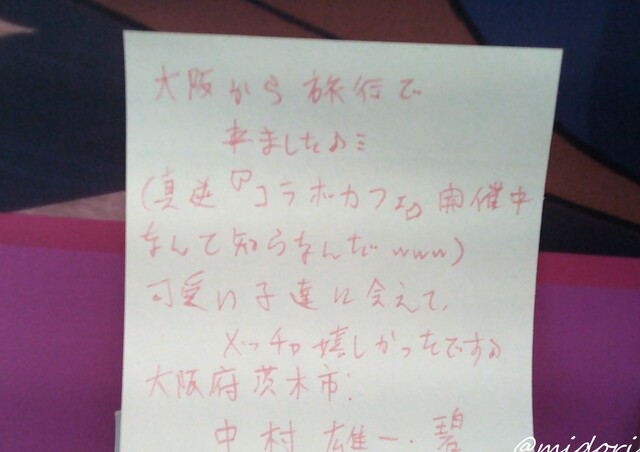 大阪から旅行で
来ました♪ミ
(真逆のコラボカフェ開催中
なんて知らなんだwww)
可愛い子達に会えて、
メッチャ嬉しかったです♪
大阪府茨木市:
中村 雄一・碧
@midori